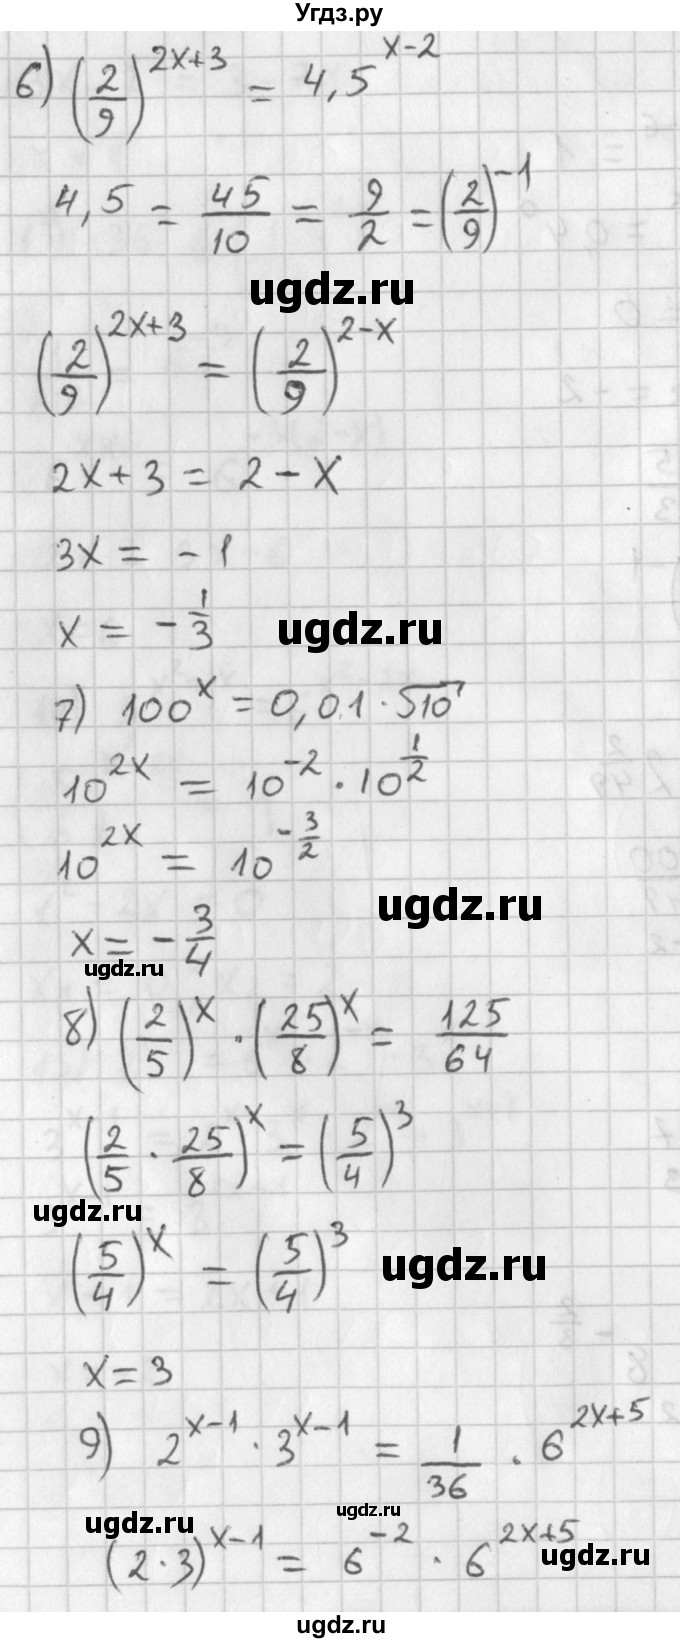 Угдз.ру
6) (2/9)^(2x+3) = 4,5^(x-2)
4,5 = 45/10 = 9/2 = (2/9)^(-1)
ugdz.ru
(2/9)^(2x+3) = (2/9)^(2-x)
2x+3 = 2-x
3x = -1
x = -1/3
ugdz.ru
7) 100^x = 0,01·√10
10^(2x) = 10^(-2)·10^(1/2)
10^(2x) = 10^(-3/2)
ugdz.ru
x = -3/4
ugdz.ru
8) (2/5)^x · (25/8)^x = 125/64
(2/5 · 25/8)^x = (5/4)^3
ugdz.ru
(5/4)^x = (5/4)^3
ugdz.ru
x = 3
9) 2^(x-1) · 3^(x-1) = 1/36 · 6^(2x+5)
ugdz.ru
ugdz.ru
(2·3)^(x-1) = 6^(-2) · 6^(2x+5)
ugdz.ru
ugdz.ru